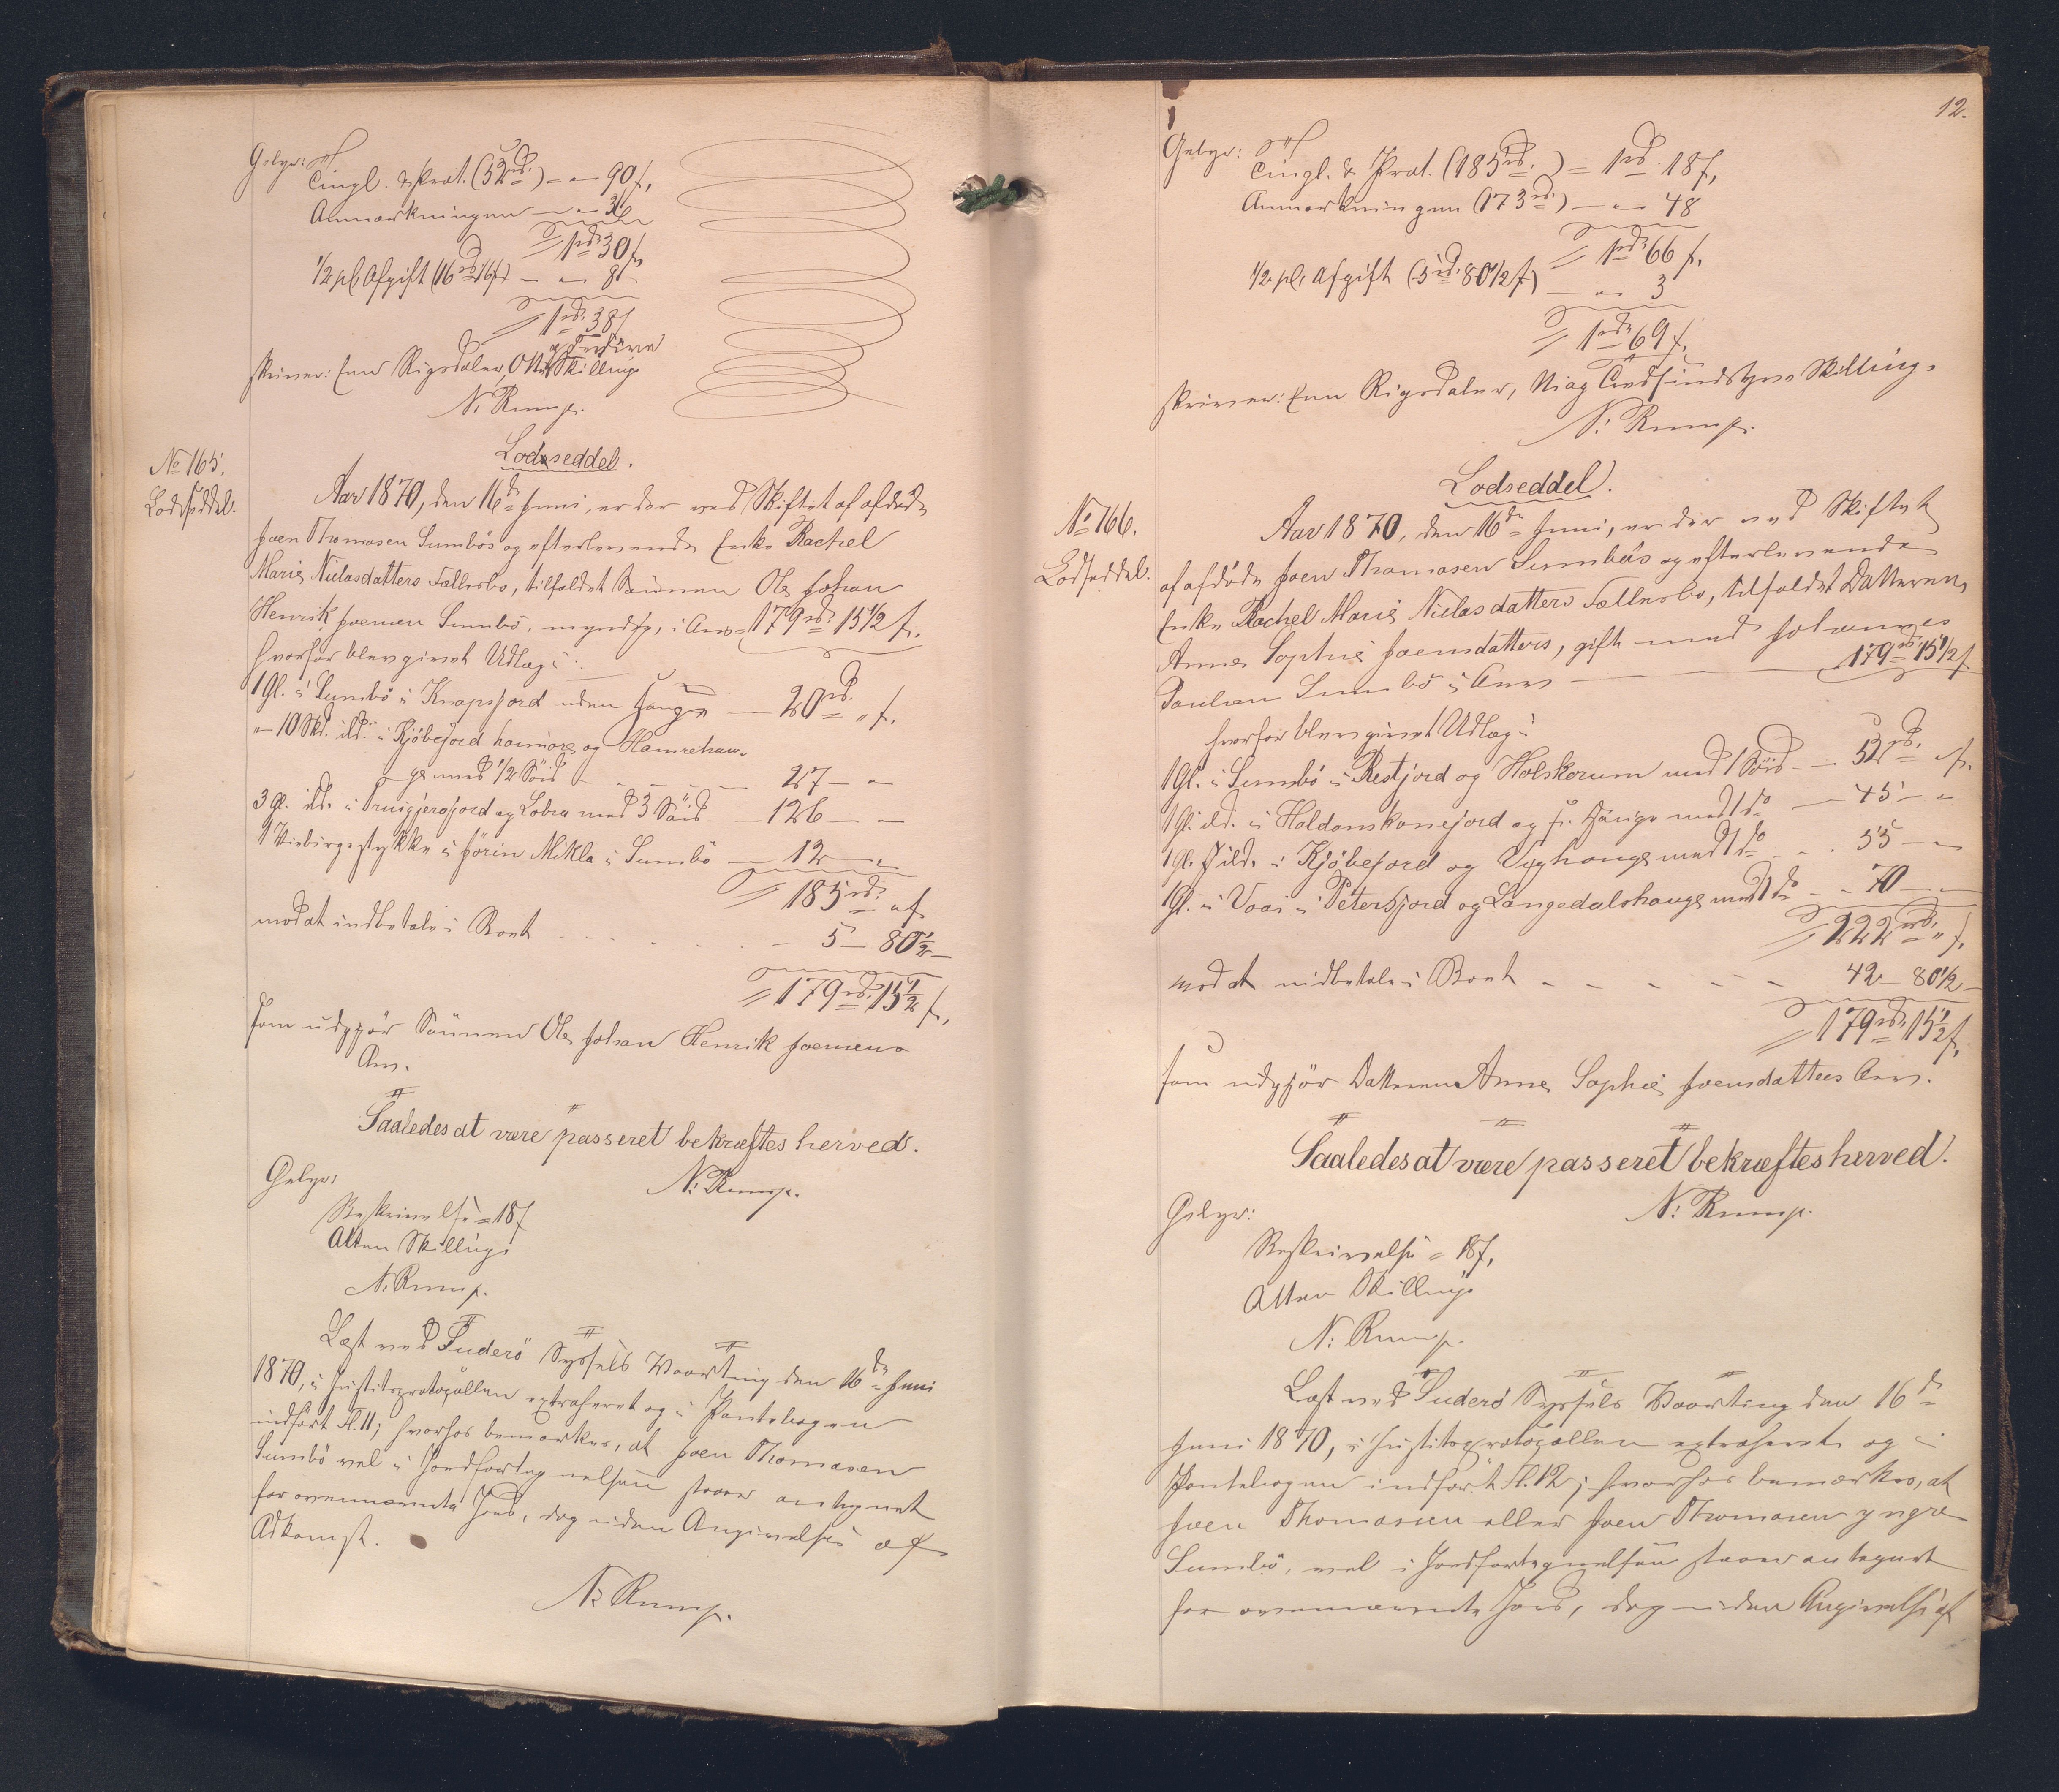 Gebyr:
Tingl. & Prot. (52rd.) = " 90 ß,
Anmærkningen — " 36
= 1rd. 30 ß,
1/2 pC. Afgift (16rd 16ß) — " 8
= 1rd. 38 ß
skriver: Een Rigsdaler, Otte og Tredive Skilling
N. Rump.
No 165.
Lodseddel.
Lodsseddel.
Aar 1870, den 16de Juni, er der ved Skiftet af afdøde
Joen Thomasen Sumbös og efterlevende Enke Rachel
Marie Niclasdatters Fællesbo, tilfaldet Sönnen Ole Johan
Henrik Joensen Sumbö, myndig, i Arv = 179rd. 15 1/2 ß.
hvorfor blev givet Udlæg i:
1 Gl. i Sumbö i Knapsjord uden Hauge — 20rd. " ß.
" 10 Skd. ibd. i Kjöbejord haimare og Hamrehau-
ge med 1/2 Söid — 27 — "
3 Gl. ibd. i Truigjerajord og Lobra med 3 Söid — 126 — —
1 Viebirgestykke i Jörin Mikla i Sumbö — 12 — "
= 185rd. " ß
mod at indbetale i Boet — 5 — 80 1/2 —
= 179rd. 15 1/2 ß,
som udgjör Sönnen Ole Johan Henrik Joensens
Arv.
Saaledes at være passeret bekræftes herved.
N. Rump.
Gebyr:
Beskrivelse = 18 ß
Atten Skilling
N. Rump.
Læst ved Suderö Syssels Vaarting den 16de Juni
1870, i Justitsprotocollen extraheret og i Pantebogen
indfört fl. 11; hvorhos bemærkes, at Joen Thomasen
Sumbö vel i Jordfortegnelsen staaer antegnet
for ovennævnte Jord, dog uden Angivelse af
Adkomst.
N. Rump.
12.
Gebyr:
Tingl. & Prot. (185rd. ) = 1rd. 18 ß,
Anmærkningen (173rd.) — " 48
= 1rd. 66 ß,
1/2 pC. Afgift (5rd. 80 1/2 ß) — " 3
= 1rd. 69 ß.
skriver: Een Rigsdaler, Ni og Tredsindstyve Skilling.
N. Rump.
No 166.
Lodseddel.
Lodseddel.
Aar 1870, den 16de Juni, er der ved Skiftet
af afdöde Joen Thomasen Sumbös og efterlevende
Enke Rachel Marie Niclasdatters Fællesbo, tilfaldet Datteren,
Anne Sophie Joensdatters, gift med Johannes
Poulsen Sumbö i Arv — 179rd. 15 1/2 ß
hvorfor blev givet Udlæg i
1 Gl. i Sumbö i Restjord og Holskorum med 1 Söid — 52rd. " ß.
1 Gl. ibd. i Haldanskonejord og Hauge med 1 do — 45 — "
1 Gl. ibd. i Kjöbejord og Vyghauge med 1 do — 55 — "
1 Gl. i Vaai i Petersjord og Langedalshauge med 1 do — 70 — "
= 222rd. " ß.
mod at indbetale i Boet — 42 — 80 1/2 —
= 179rd. 15 1/2 ß,
som udgjör Datteren Anne Sophie Joensdatters Arv.
Saaledes at være passeret bekræftes herved.
N. Rump.
Gebyr:
Beskrivelse = 18 ß,
Atten Skilling
N. Rump.
Læst ved Suderö Syssels Vaarting den 16de
Juni 1870, i Justitsprotocollen extraheret og i
Pantebogen indfört fl. 12; hvorhos bemærkes, at
Joen Thomasen eller Joen Thomasen yngre
Sumbö, vel i Jordfortegnelsen staaer antegnet
for ovennævnte Jord, dog uden Angivelse af